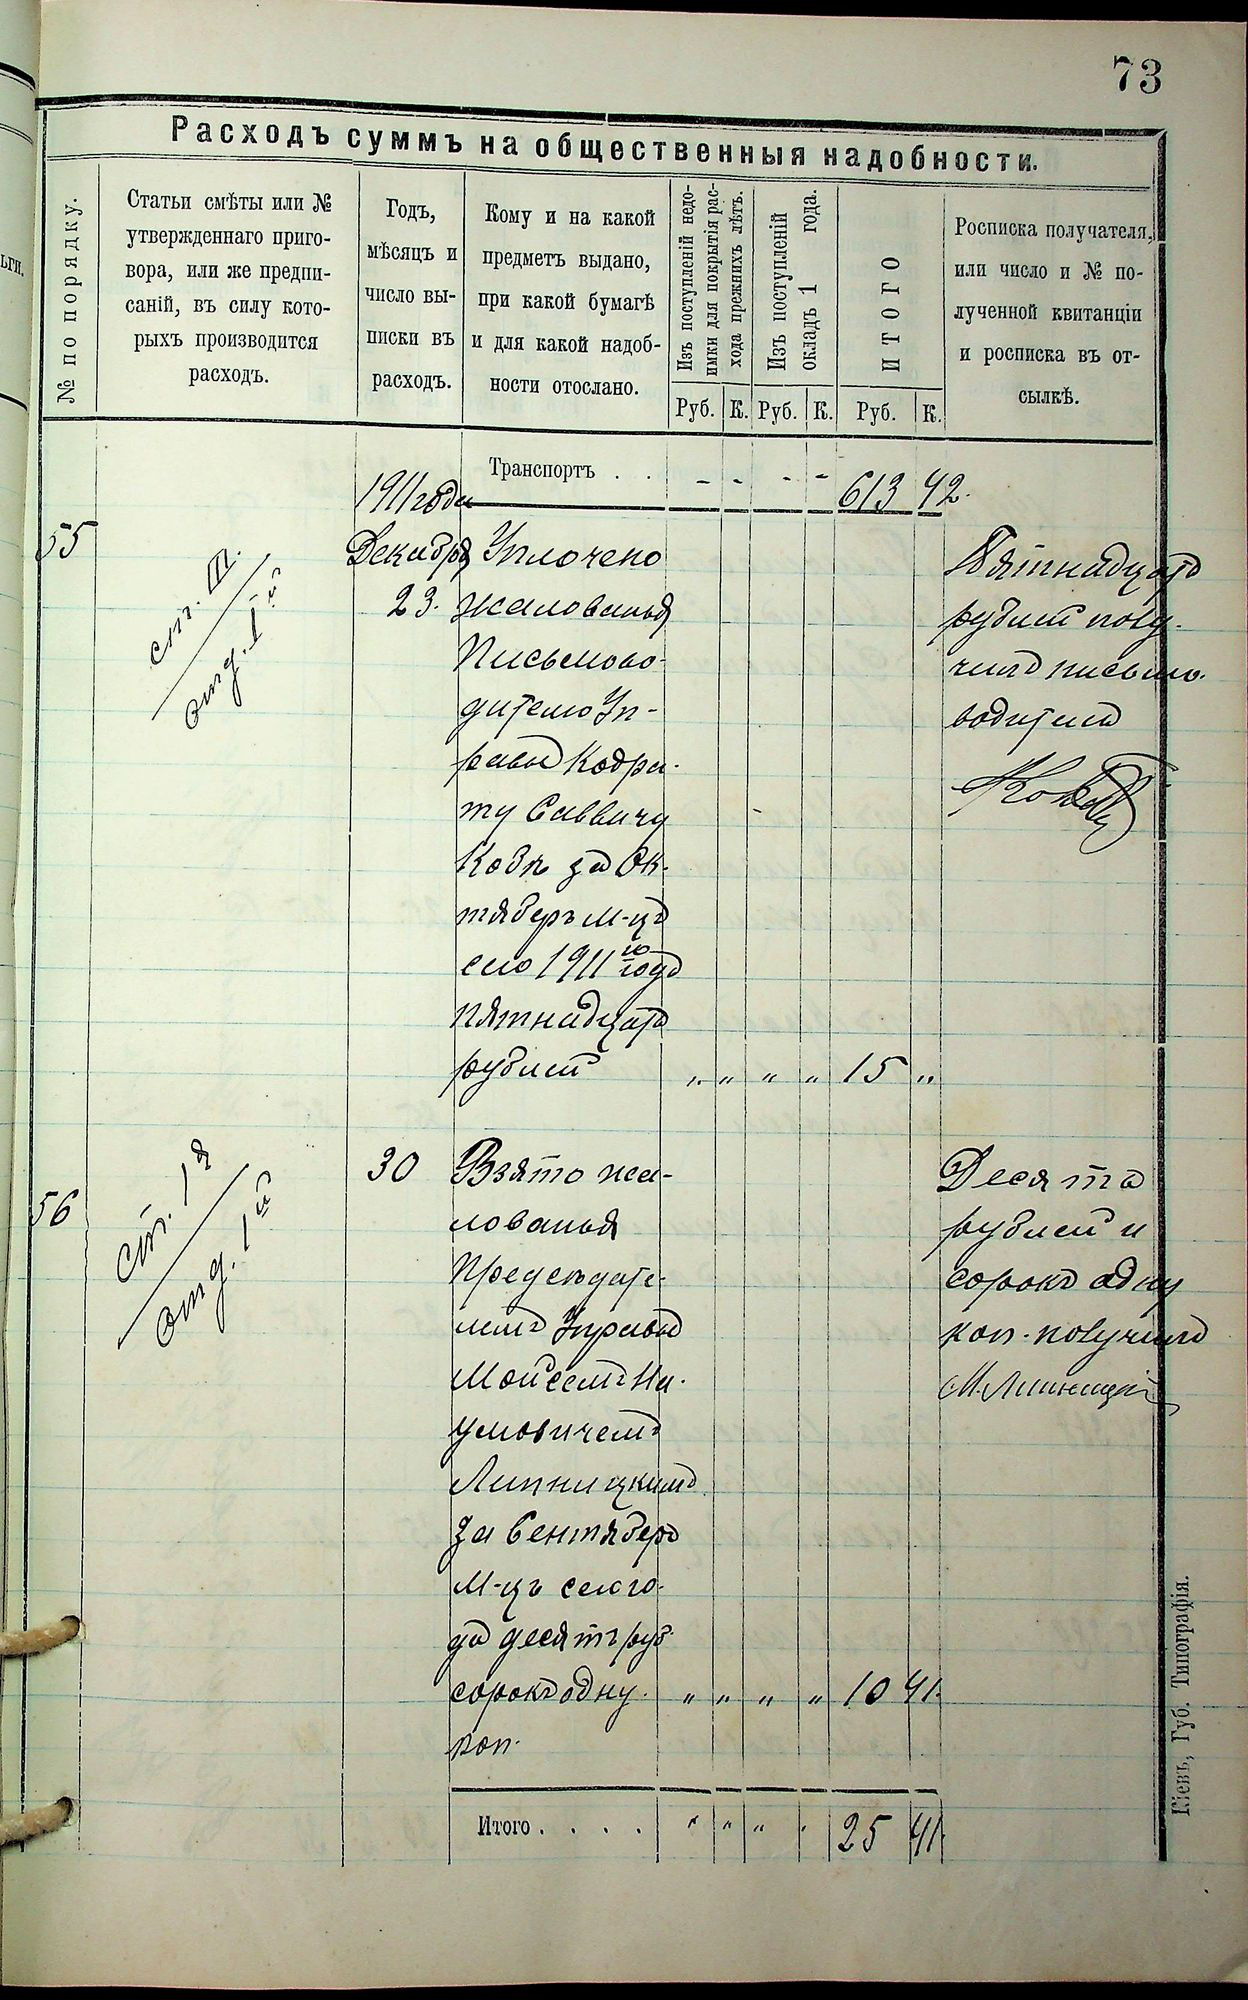 73
Расходъ суммъ на общественныя надобности.
№ по порядку.
Статьи смѣты или №
утвержденнаго приго-
вора, или же предпи-
саній, въ силу кото-
рыхъ производится
расходъ.
Годъ,
мѣсяцъ и
число вы-
писки въ
расходъ.
Кому и на какой
предметъ выдано,
при какой бумагѣ
и для какой надоб-
ности отослано.
Изъ поступленій недо-
имки для покрытія рас-
хода прежнихъ лѣтъ.
Изъ поступленій
окладъ 1 года.
ИТОГО
Росписка получателя,
или число и № по-
лученной квитанціи
и росписка въ от-
сылкѣ.
Руб. К. Руб. К. Руб. К.
Транспортъ . . - - - - 613 42.
1911 года
55
ст. III.
отд. 1й
Декабря
23.
Уплочено
жалованья
Письмово-
дителю Уп-
равы Кодра-
ту Саввичу
Кобѣ за Ок-
тябрь м-цъ
сего 1911го года
пятнадцать
рублей „ „ „ „ 15 „
Пятнадцать
рублей полу-
чилъ письмо-
водитель
56
ст. 1я
отд. 1й
30
Взято жа-
лованья
Предсѣдате-
лемъ Управы
Мойсеемъ На-
умовичемъ
Липницкимъ
за Сентябрь
м-цъ сего го-
да десять руб.
сорокъ одну „ „ „ „ 10 41.
коп.
Десять
рублей и
сорокъ одну
коп. получилъ
М. Липницкій
Итого . . . . „ „ „ „ 25 41.
Кіевъ, Губ. Типографія.
ьги.